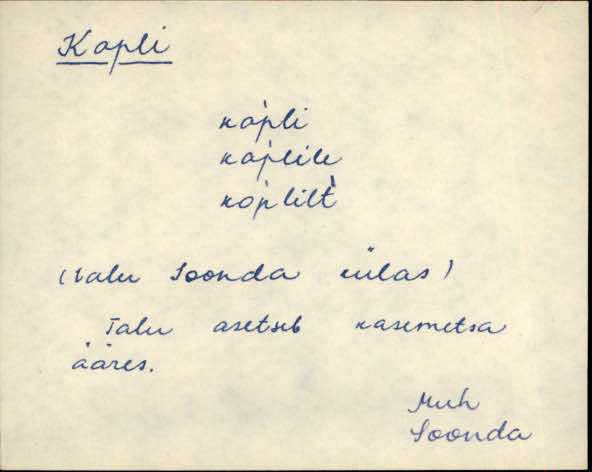 Kopli
kòpli
kòplile
kòplilt̀
(talu Soonda külas)
Talu asetseb kasemetsa
ääres.
Muh
Soonda